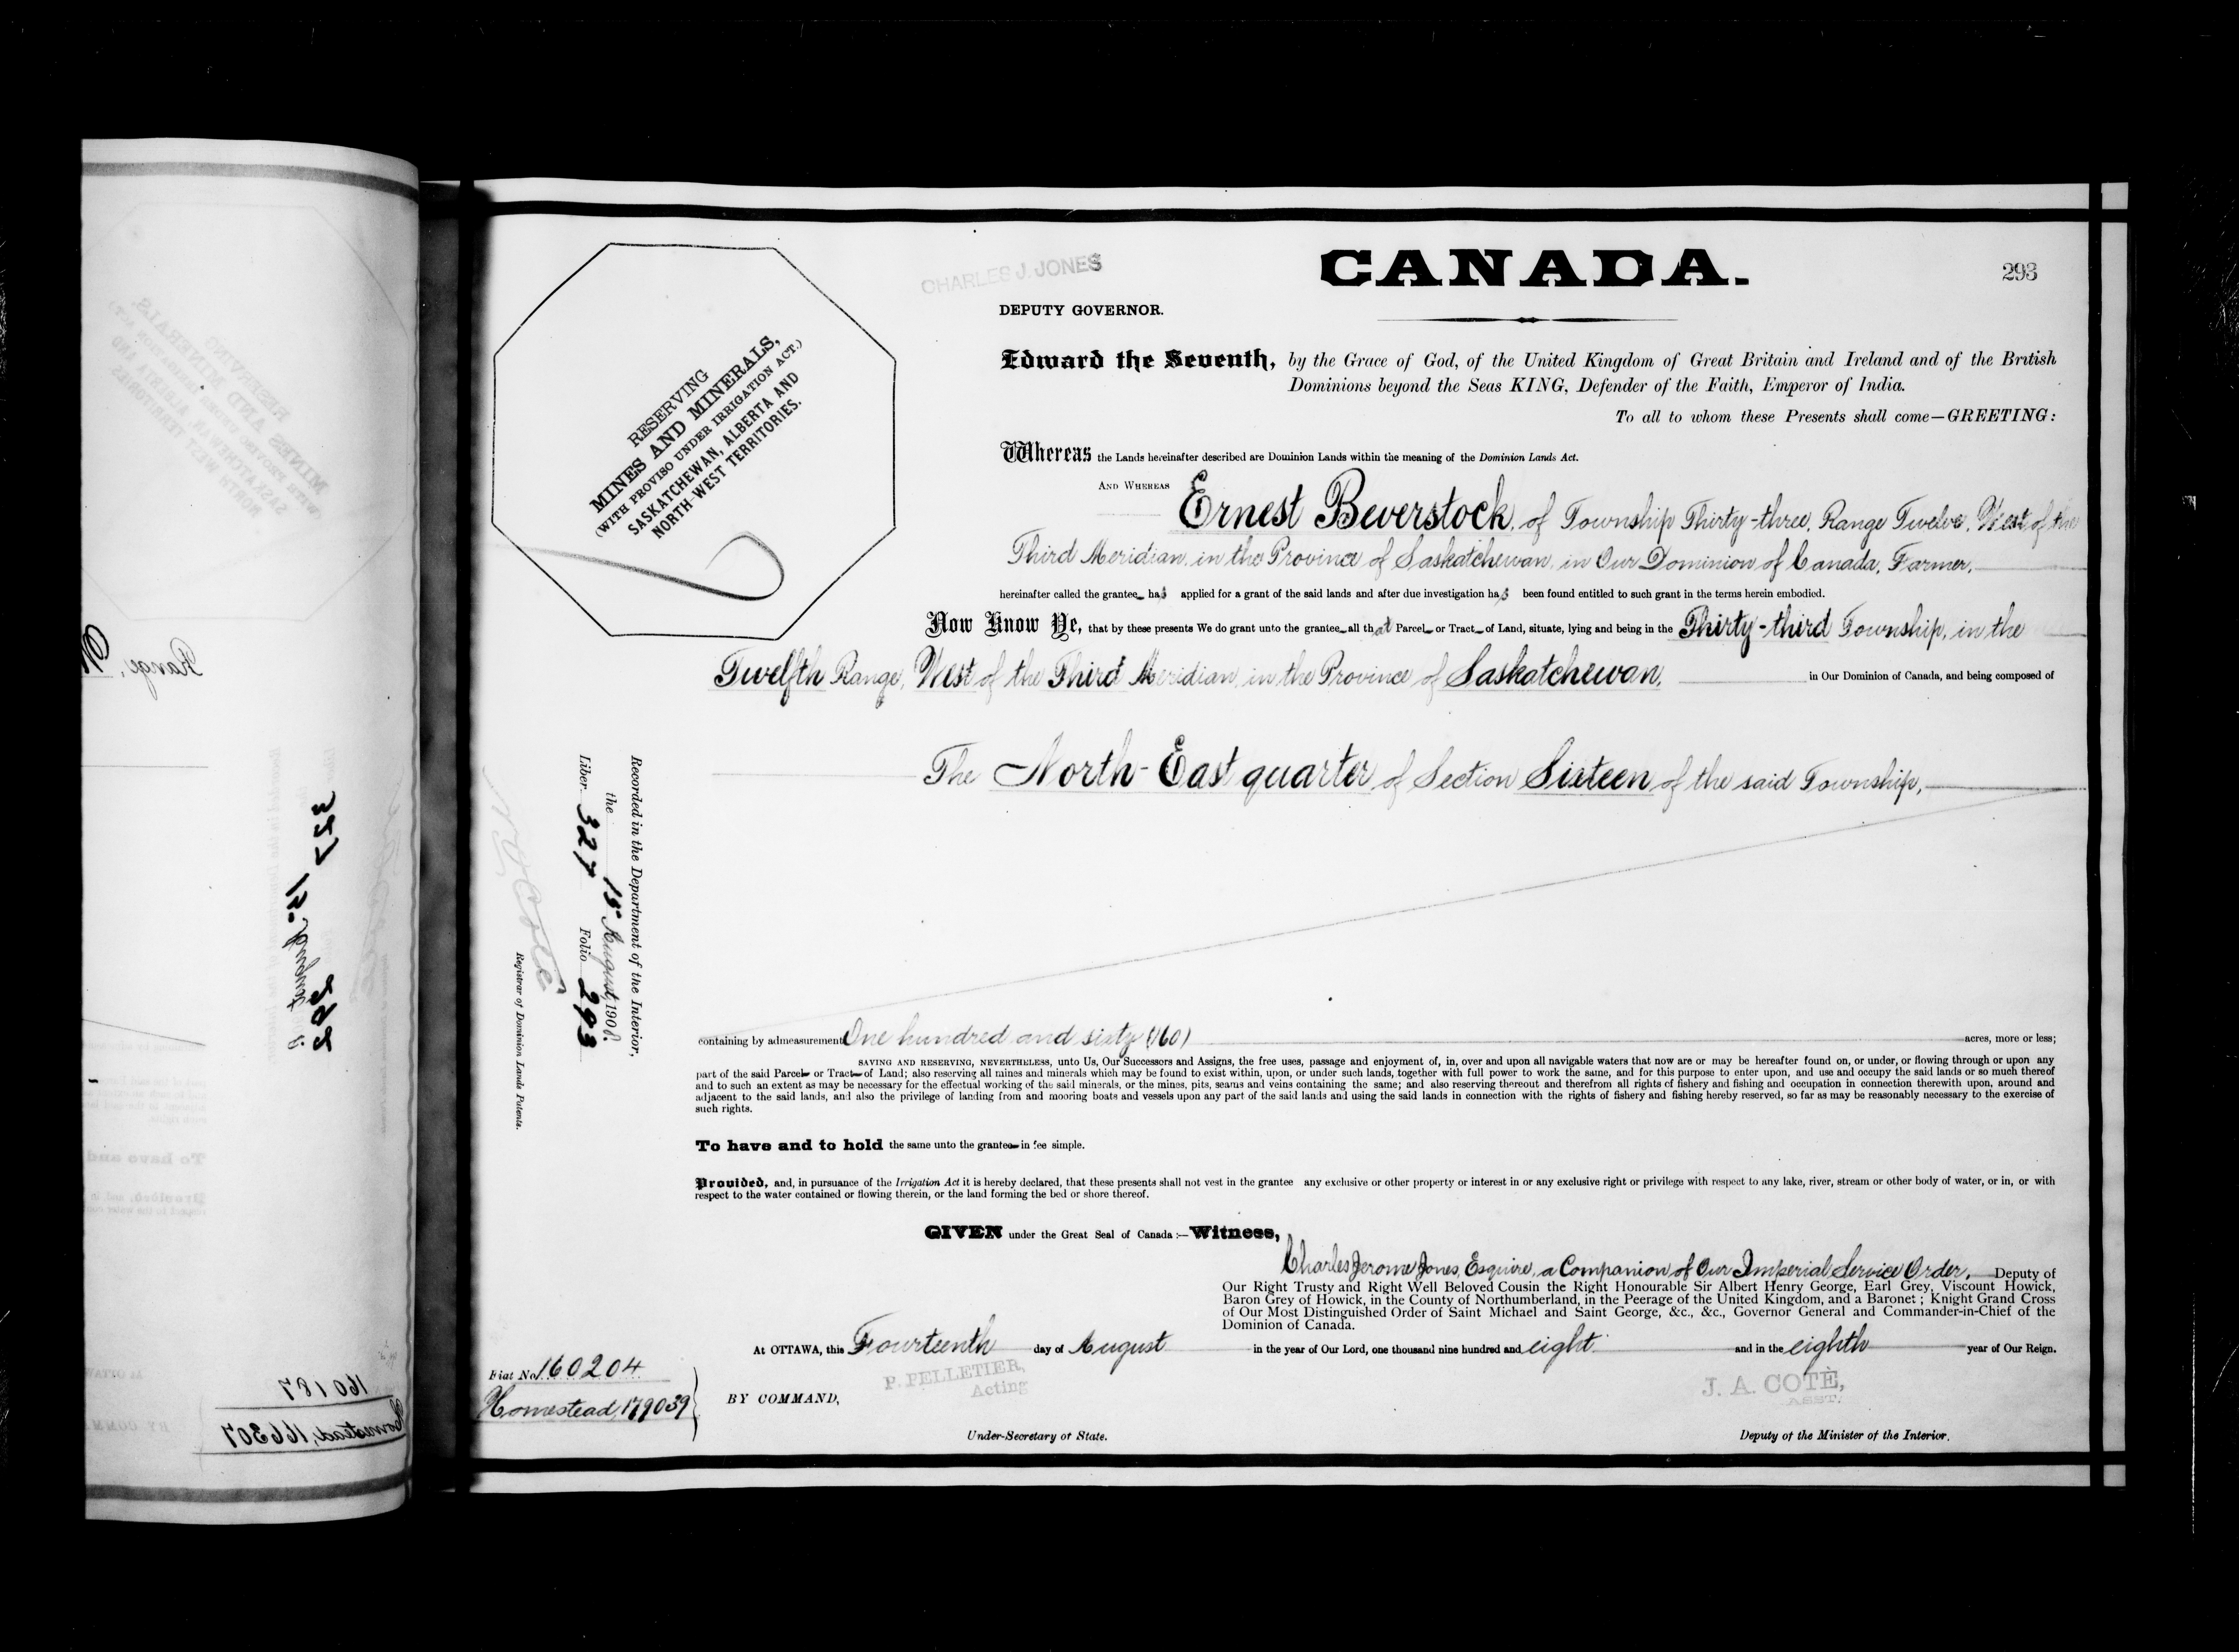 CANADA.
293
CHARLES J. JONES
DEPUTY GOVERNOR.
RESERVING
MINES AND MINERALS,
(WITH PROVISO UNDER IRRIGATION ACT.)
SASKATCHEWAN, ALBERTA AND
NORTH-WEST TERRITORIES.
Edward the Seventh, by the Grace of God, of the United Kingdom of Great Britain and Ireland and of the British
Dominions beyond the Seas KING, Defender of the Faith, Emperor of India.
To all to whom these Presents shall come—GREETING:
Whereas the Lands hereinafter described are Dominion Lands within the meaning of the Dominion Lands Act.
AND WHEREAS Ernest Beverstock, of Township Thirty-three, Range Twelve, West of the
Third Meridian, in the Province of Saskatchewan, in Our Dominion of Canada, Farmer,
hereinafter called the grantee has applied for a grant of the said lands and after due investigation has been found entitled to such grant in the terms herein embodied.
Now Know Ye, that by these presents We do grant unto the grantee all that Parcel or Tract of Land, situate, lying and being in the Thirty-third Township, in the
Twelfth Range, West of the Third Meridian, in the Province of Saskatchewan, in Our Dominion of Canada, and being composed of
The North-East quarter of Section Sixteen of the said Township,
Recorded in the Department of the Interior,
the 15 August 1908.
Liber 327 Folio 293
N. O. Coté
Registrar of Dominion Lands Patents.
containing by admeasurement One hundred and sixty (160) acres, more or less;
SAVING AND RESERVING, NEVERTHELESS, unto Us, Our Successors and Assigns, the free uses, passage and enjoyment of, in, over and upon all navigable waters that now are or may be hereafter found on, or under, or flowing through or upon any
part of the said Parcel or Tract of Land; also reserving all mines and minerals which may be found to exist within, upon, or under such lands, together with full power to work the same, and for this purpose to enter upon, and use and occupy the said lands or so much thereof
and to such an extent as may be necessary for the effectual working of the said minerals, or the mines, pits, seams and veins containing the same; and also reserving thereout and therefrom all rights of fishery and fishing and occupation in connection therewith upon, around and
adjacent to the said lands, and also the privilege of landing from and mooring boats and vessels upon any part of the said lands and using the said lands in connection with the rights of fishery and fishing hereby reserved, so far as may be reasonably necessary to the exercise of
such rights.
To have and to hold the same unto the grantee in fee simple.
Provided, and, in pursuance of the Irrigation Act it is hereby declared, that these presents shall not vest in the grantee any exclusive or other property or interest in or any exclusive right or privilege with respect to any lake, river, stream or other body of water, or in, or with
respect to the water contained or flowing therein, or the land forming the bed or shore thereof.
GIVEN under the Great Seal of Canada:—Witness,
Charles Jerome Jones, Esquire, a Companion of Our Imperial Service Order, Deputy of
Our Right Trusty and Right Well Beloved Cousin the Right Honourable Sir Albert Henry George, Earl Grey, Viscount Howick,
Baron Grey of Howick, in the County of Northumberland, in the Peerage of the United Kingdom, and a Baronet; Knight Grand Cross
of Our Most Distinguished Order of Saint Michael and Saint George, &c., &c., Governor General and Commander-in-Chief of the
Dominion of Canada.
At OTTAWA, this Fourteenth day of August in the year of Our Lord, one thousand nine hundred and eight and in the eighth year of Our Reign.
Fiat No 160204
Homestead, 179039
P. PELLETIER,
Acting
BY COMMAND,
Under-Secretary of State.
J. A. COTÉ,
ASST.
Deputy of the Minister of the Interior.